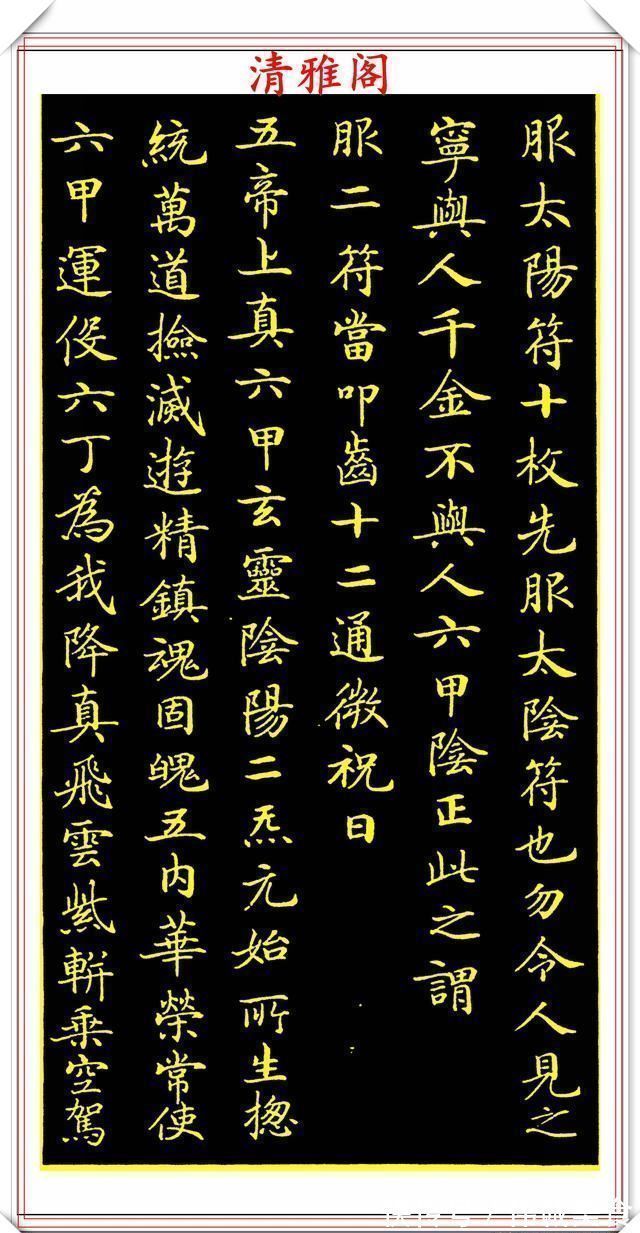 清雅阁
服太陽符十枚先服太陰符也勿令人見之
寧與人千金不與人六甲陰正此之謂
服二符當叩齒十二通微祝曰
五帝上真六甲玄靈陰陽二炁元始所生揔
統萬道撿滅遊精鎮魂固魄五內華榮常使
六甲運役六丁為我降真飛雲紫軿乗空駕